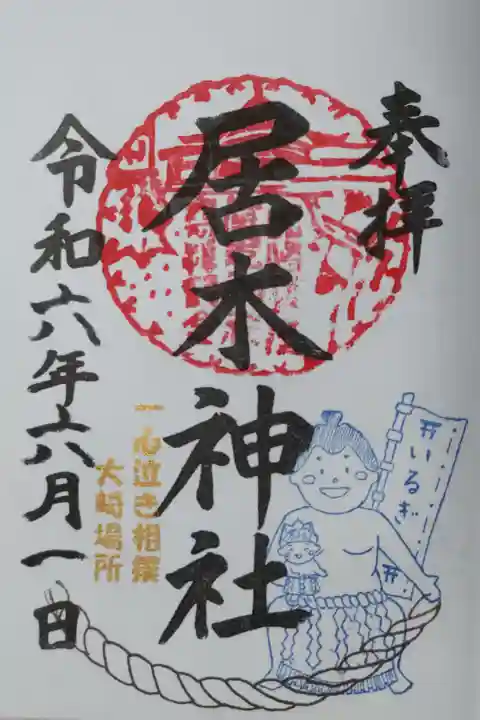 奉拝
居木神社
いるぎ
一心泣き相撲
大崎場所
令和六年六月一日